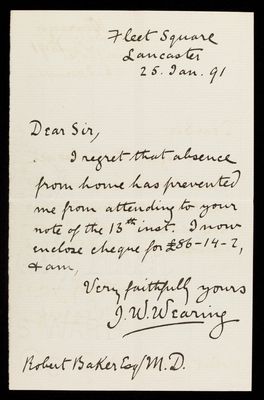 Fleet Square
Lancaster
25. Jan. 91
Dear Sir,
I regret that absence
from home has prevented
me from attending to your
note of the 13th inst. I now
enclose cheque for £86-14-2,
& am,
Very faithfully yours
J. W. Wearing
Robert Baker Esq M.D.